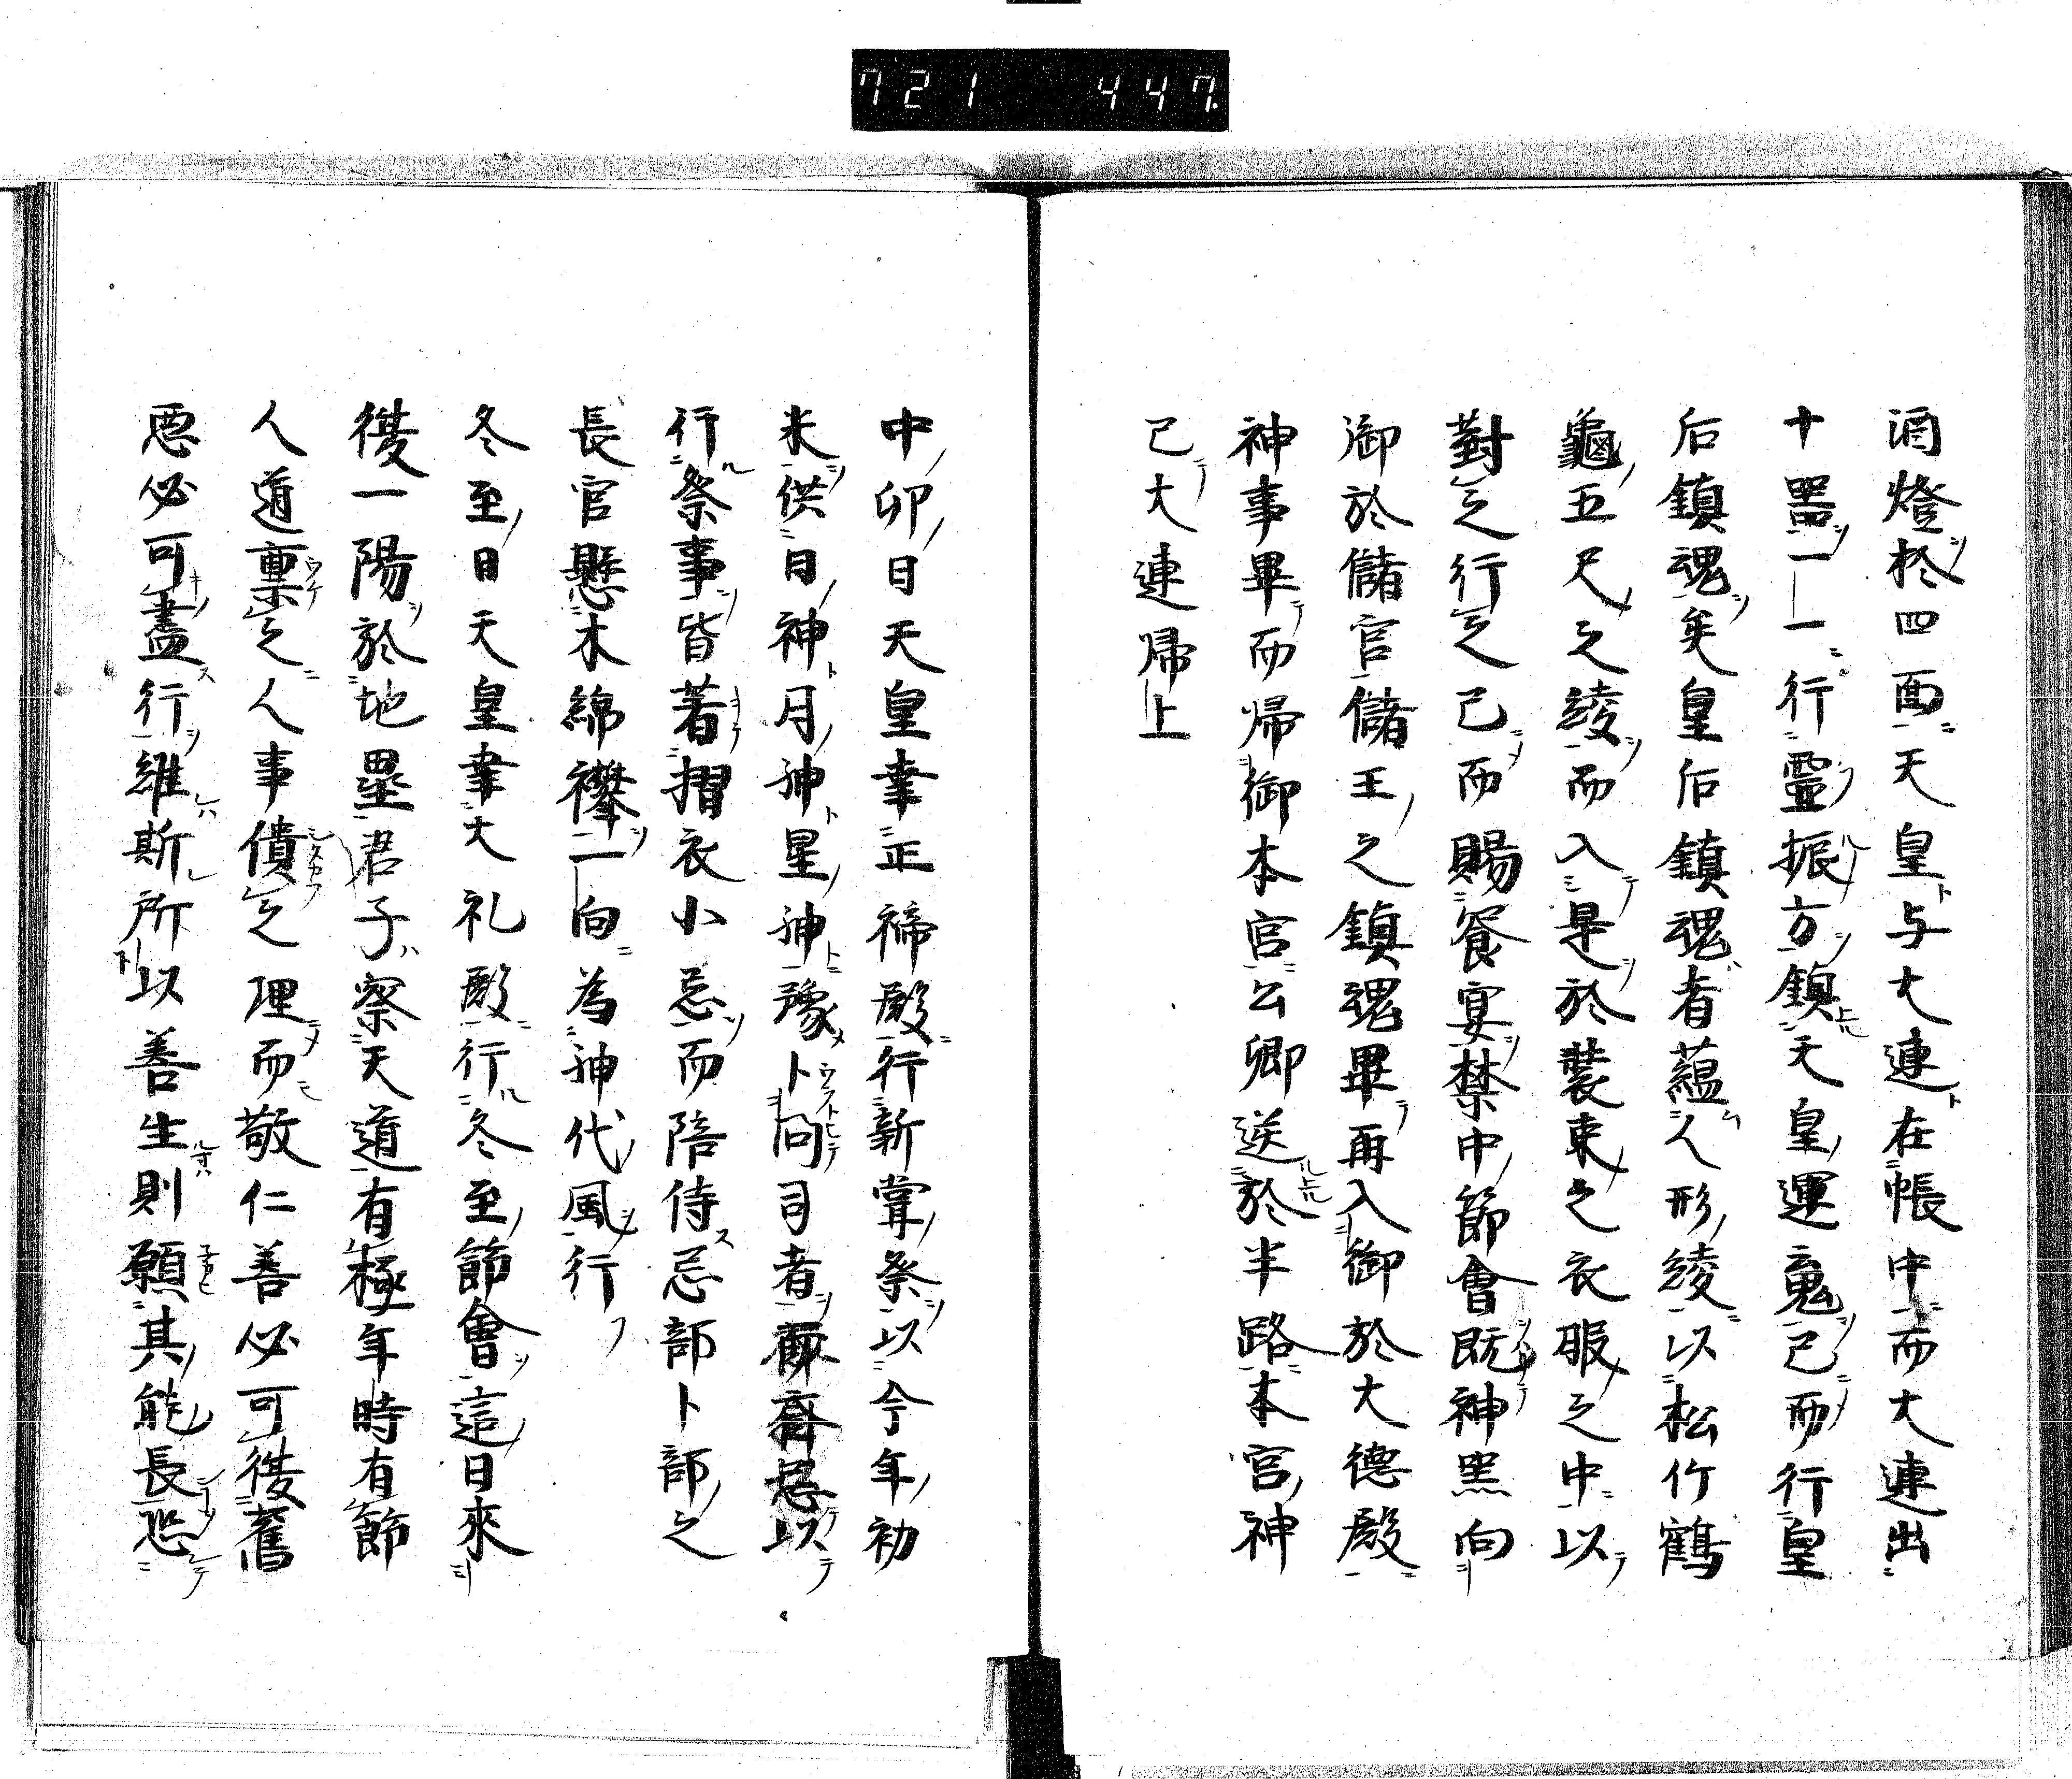 721 447
酒燈於四面天皇与大連在帳中而大連出
十器一一行靈振方鎮天皇運䰟已而行皇
后鎮魂矣皇后鎮魂者蘊人形綾以松竹鶴
龜五尺之綾而入是於裝束之衣服之中以
對之行之已而賜餐宴禁中節會既神黑向
御於儲官儲王之鎮魂畢再入御於大德殿
神事畢而帰御本官公卿送於半路本宮神
已大連帰上
中卯日天皇幸正禘殿行新甞祭以今年初
米供日神月神星神豫卜問司者齋忌以
行祭事皆著摺衣小忌而陪侍忌部卜部之
長官懸木綿襷一向為神代風行
冬至日天皇幸大礼殿行冬至節會這日來
復一陽於地壘君子察天道有極年時有節
人道稟之人事債之理而敬仁善必可復舊
悪必可盡行維斯所以善生則願其能長恐